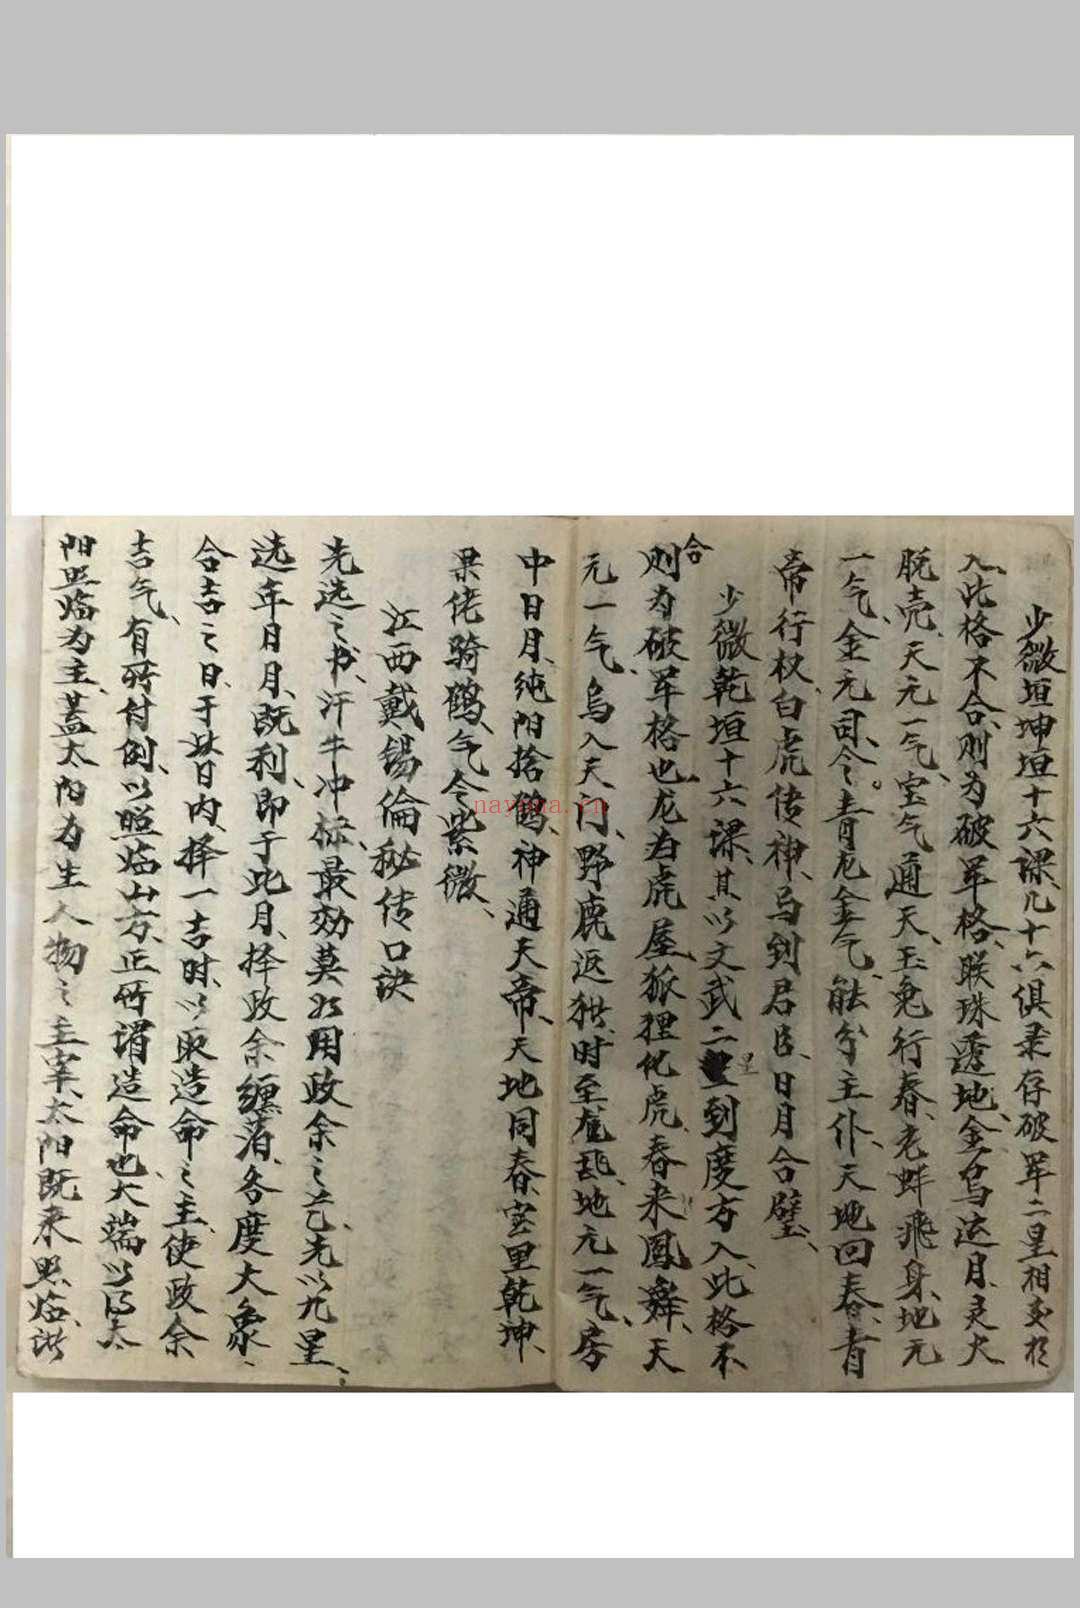 少微垣坤垣十六课、凡十六俱录存破军二星相交於
入、此格不合、则为破军格、联珠透地、金乌达月、灵犬
脱壳、天元一气、宝气通天、玉兔行春、老蚌飛身、地元
一气、金元司令。青龙金气、能分主仆、天地回春、青
帝行权、白虎传神、乌到君臣、日月合璧、
少微乾垣十六课、其以文武二星到度方入、此格不
合则为破军格也、龙为虎屋、狐狸化虎、春来鳳舞、天
元一气、乌入天门、野鹿返、时至、地元一气、房
中日月、純阳捨鶴、神通天帝、天地同春、室里乾坤、
果佬騎鶴、气令紫微、
江西戴锡倫秘传口訣
先选之书、汗牛冲栋、最効莫如用政余之艺、先以九星、
选年日月、既利、即于此月、择政余缠落、各度大象、
合吉之日、于此日内、择一吉时、以取造命之主、使政余
吉气、有所付例、以照临山方、正所谓造命也、大端以太
阳照临为主、蓋太阳为生人物之主宰、太阳既来照临、諸
nayona.cn